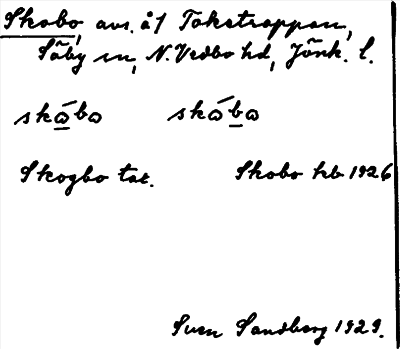 Skobo, avs. å 1 Toketroppan,
Säby sn, N. Vedbo hd, Jönk. l.
skó̲bo skób̲o
Skogbo tax. Skobo hb 1926
Sven Sandberg 1929.